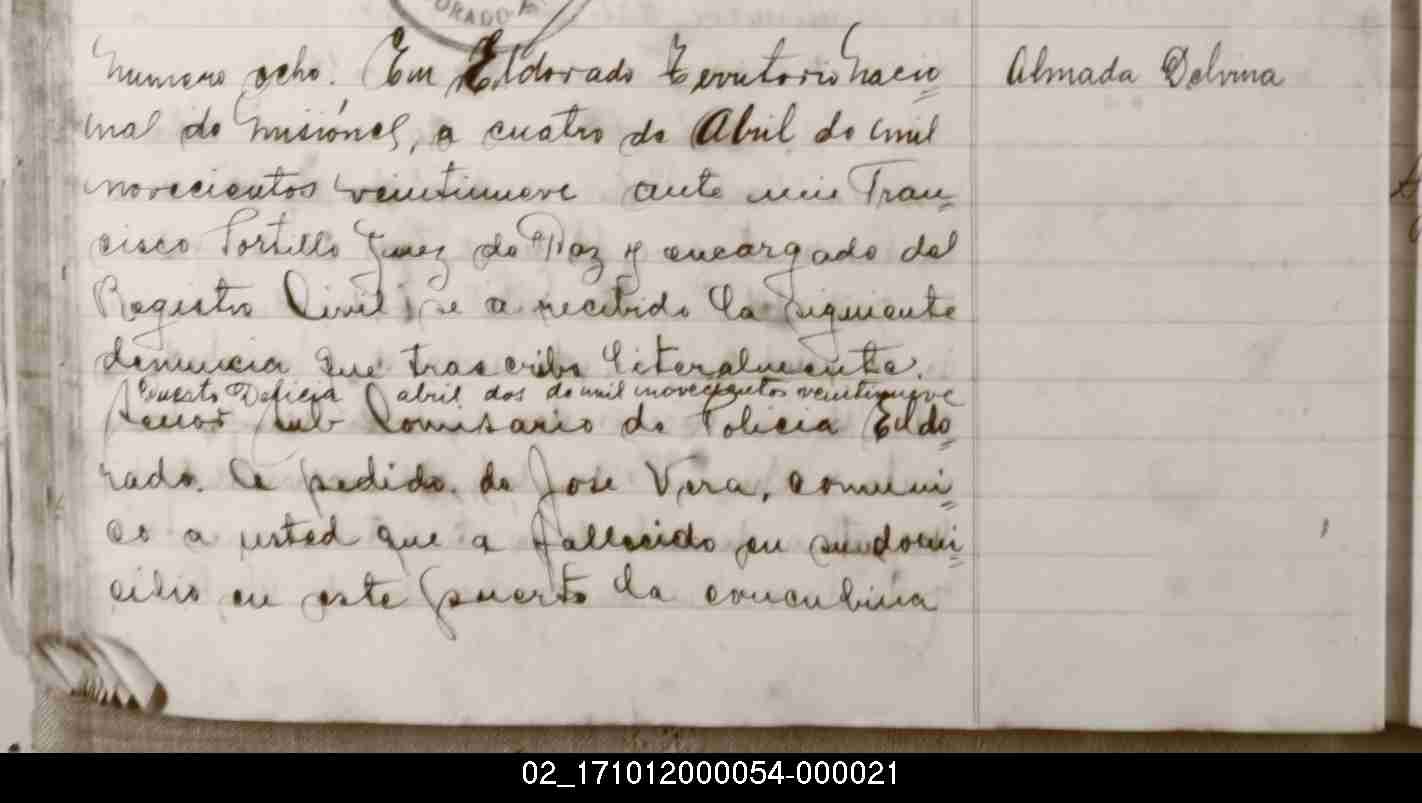 ORADO
Numero ocho. En Eldorado Territorio Nacio=
nal de Misiónes, a cuatro de Abril de mil
novecientos veintinueve ante mi Fran=
cisco Portillo Juez de Paz y encargado del
Registro Civil, se a recibido la siguiente
denuncia que trascribo literalmente.
Puesto Delicia abril dos de mil novecientos veintinueve
Señor Sub Comisario de Policia Eldo=
rado. A pedido de Jose Vera, comuni=
co a usted que a fallecido en su domi=
cilio en este puerto la concubina
Almada Delvina
02_171012000054-000021